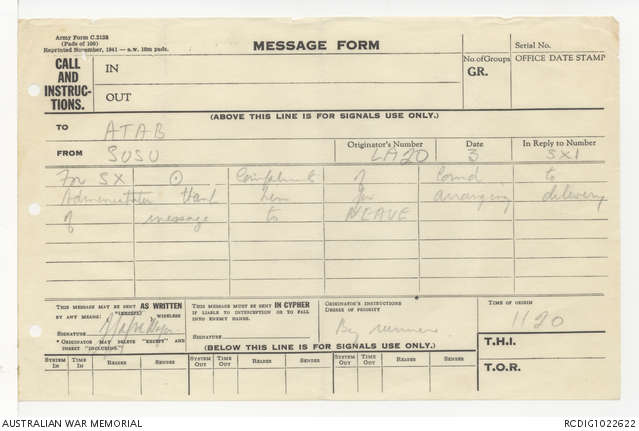 Army Form C.2128
(Pads of 100)
Reprinted November, 1941 — s.w. 10m pads.
MESSAGE FORM
Serial No.
CALL AND INSTRUC- TIONS.
IN
OUT
No. of Groups
GR.
OFFICE DATE STAMP
(ABOVE THIS LINE IS FOR SIGNALS USE ONLY.)
TO ATAB
FROM SUSU
Originator's Number LA20
Date 3
In Reply to Number SX1
For SX ⊙ Compliments of Comd to
Administrator thank him for arranging delivery
of message to NEAVE
THIS MESSAGE MAY BE SENT AS WRITTEN
BY ANY MEANS. (*EXCEPT) WIRELESS
SIGNATURE
* ORIGINATOR MAY DELETE "EXCEPT" AND INSERT "INCLUDING."
THIS MESSAGE MUST BE SENT IN CYPHER
IF LIABLE TO INTERCEPTION OR TO FALL INTO ENEMY HANDS.
SIGNATURE
ORIGINATOR'S INSTRUCTIONS
DEGREE OF PRIORITY
By runner
TIME OF ORIGIN
1120
(BELOW THIS LINE IS FOR SIGNALS USE ONLY.)
T.H.I.
T.O.R.
SYSTEM IN TIME IN READER SENDER SYSTEM OUT TIME OUT READER SENDER SYSTEM OUT TIME OUT READER SENDER
AUSTRALIAN WAR MEMORIAL
RCDIG1022622